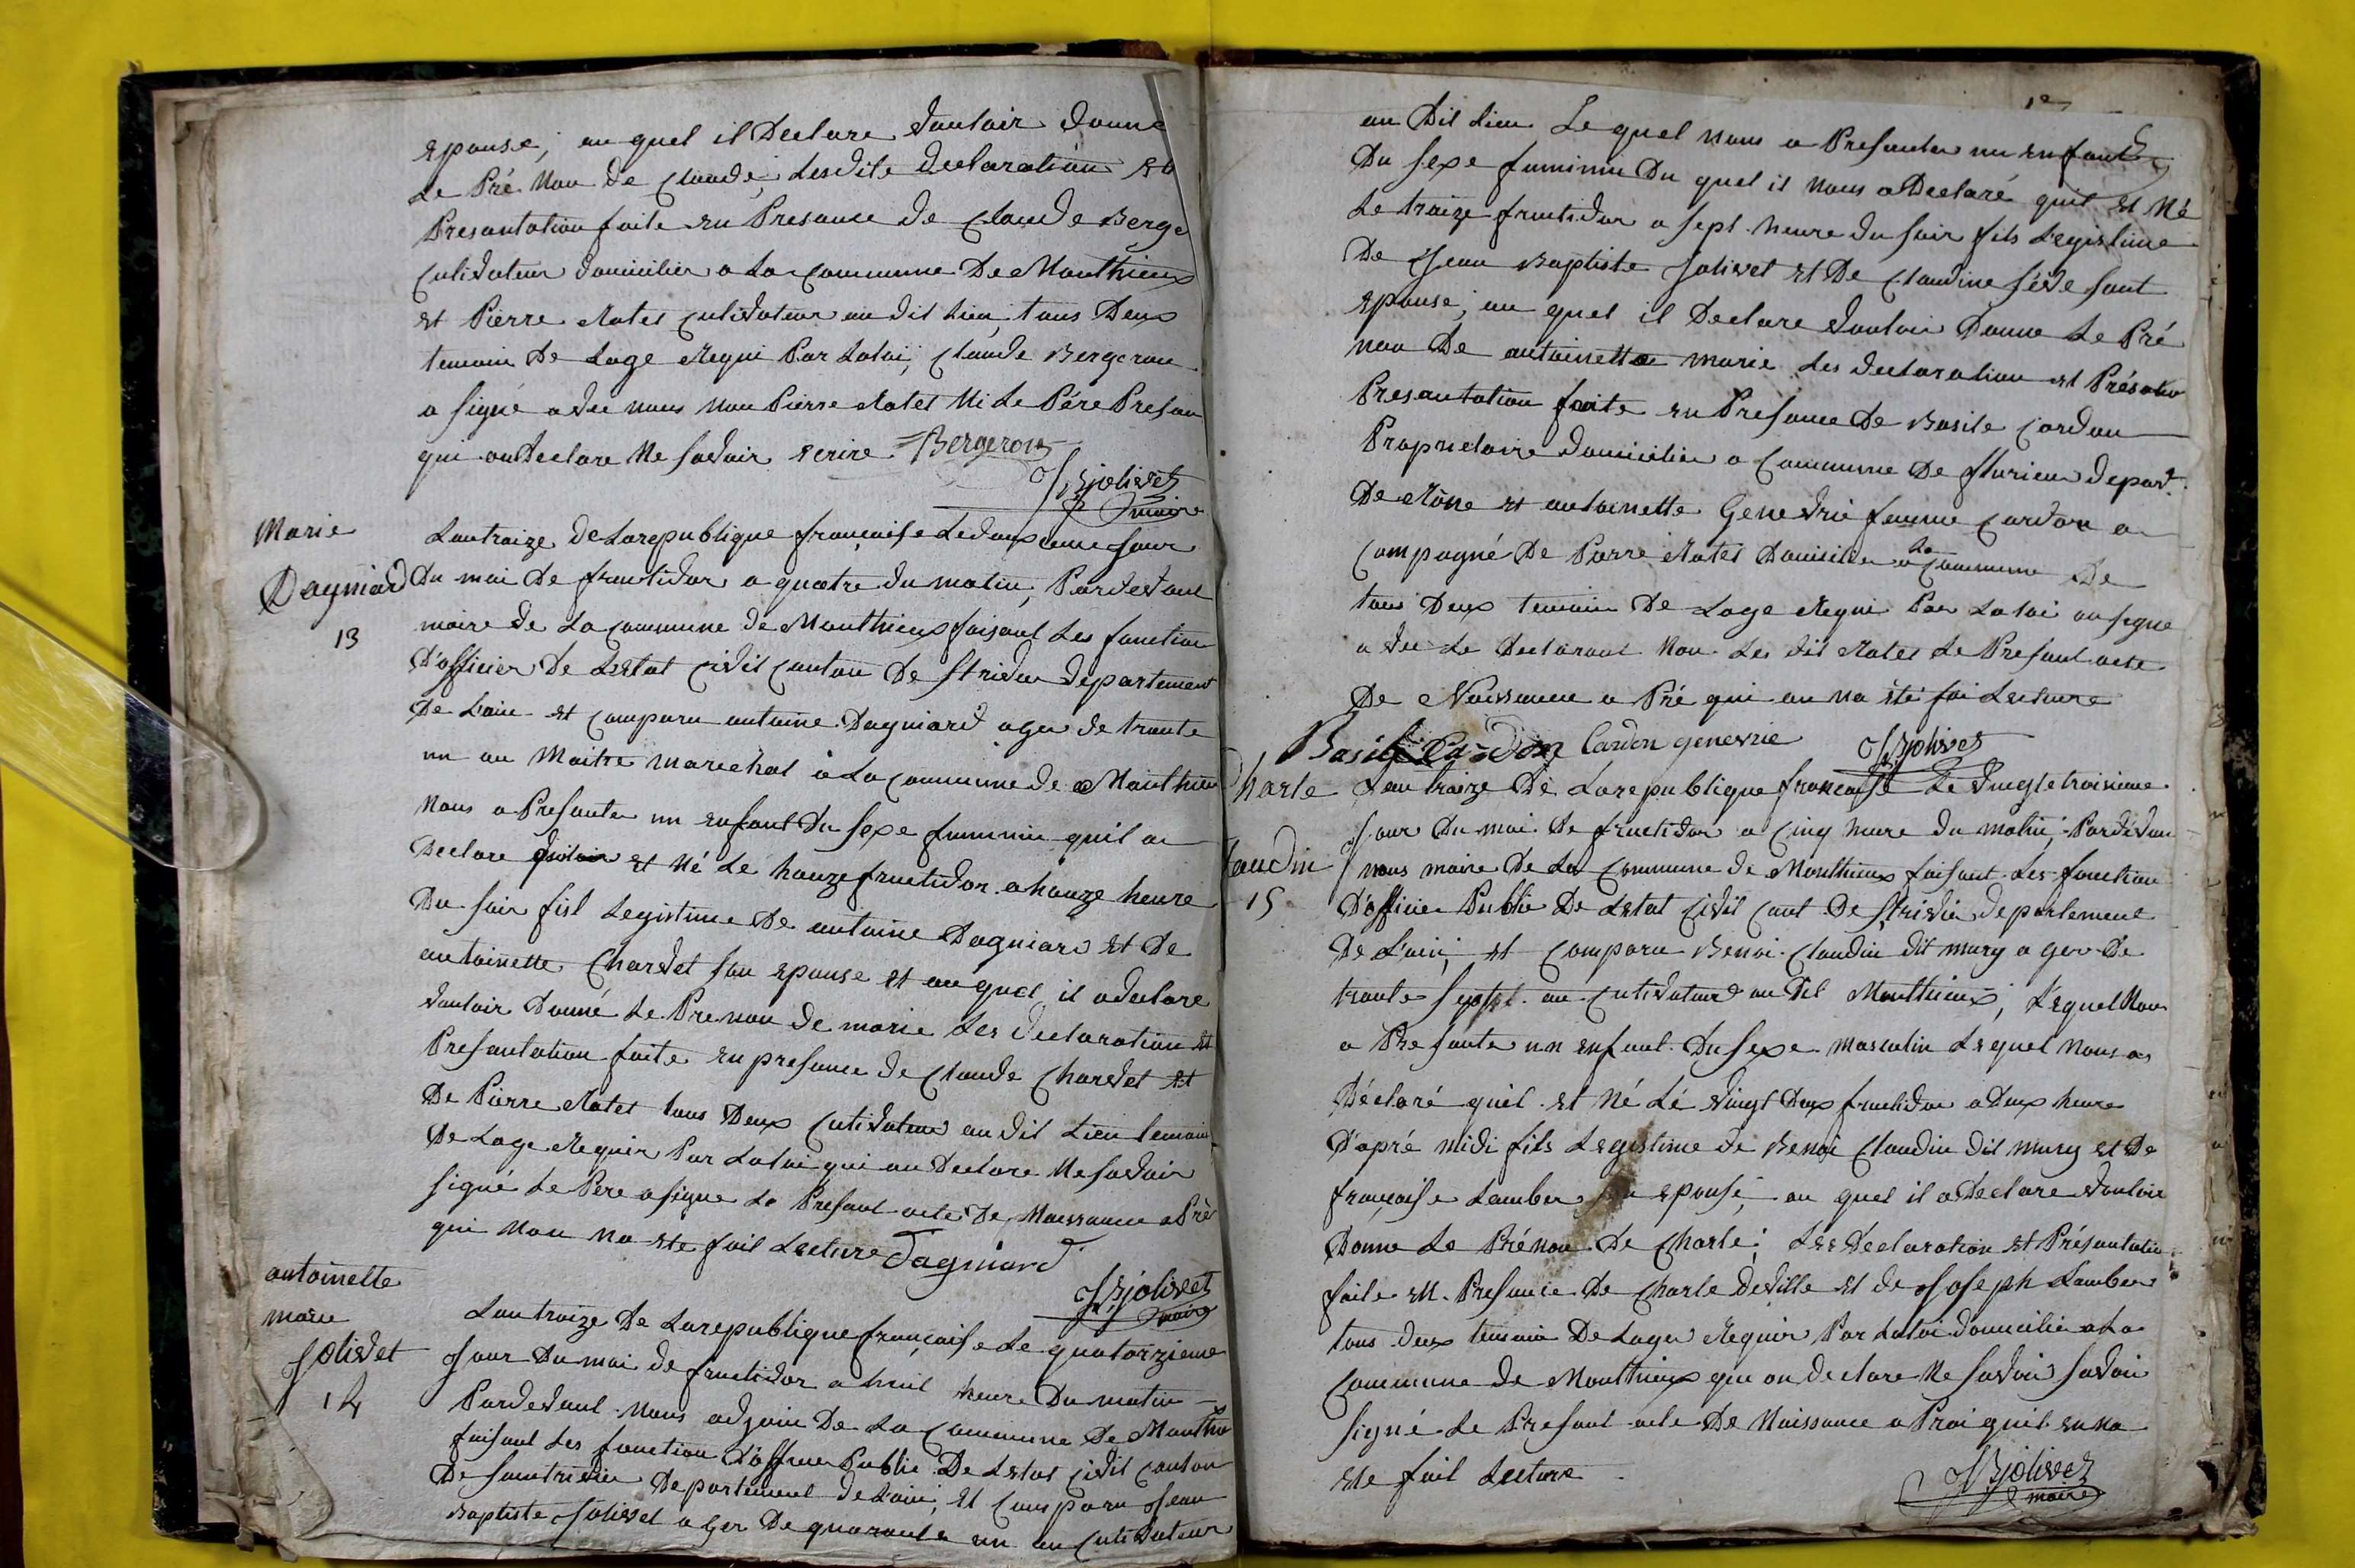 epouse, au quel il Declare vouloir donne
Le Pré Non De Claude, Lesdite Declaration
Presantation faite en Presance de Claude Berge
Cultivateur domicilier a La Commune De Monthieux
et Pierre Matel Cultivateur au dit Lieu, tous Deux
temoin De Lage Requi Par Laloi, Claude Bergeron
a signé avec nous Non Pierre Matel Ni Le Pére Presan
qui on Declare Ne savoir ecrire Bergeron
JBjolivet
maire
Marie
Dagniard
13
Lantraize De Larepublique française Ledouxieme Jour
Du moi De fructidor a quatre du matin, Pardevant
maire de La Commune de Monthieux faisant Les fonction
D'officier De Lestat Civil Canton De strivier departement
De L'ain et Comparu antoine Dagniard ager de trante
un an Maitre marechal à La Commune de Monthieu
Nous a Presanter un enfant Du sexe feminin quil a
Declare et Né Le honze fructidor a honze heure
Du soir fisl Legistime De antoine Dagniard et De
antoinette Chardet son epouse et au quel il a declare
vouloir Donné Le Prenon de marie Les declaration et
Presantation faite en presance de Claude Chardet et
De Pierre Matel tous Deux Cutivateur au dit Lieu temoin
De Lage Requir Par Laloi qui on Declare Ne savoir
signé Le Pere a signe Le Presant acte De Naissance a Prè
qui Nou na ete fait Lecture Dagniard
JBjolivet
maire
antoinette
marie
Jolivet
14
Lantraize De Larepublique française Le quatorzieme
Jour Du moi de fructidor a huit heure Du matin
Pardevant Nous adjoin De La Commune De Monthieux
faisant Les fonction d'officier Public De Lestat Civil Canton
De saintrivier Departement de L'ain, et Comparu Jean
Baptiste Jolivet ager De quarante un an Cultivateur
au Dit Lieu Le quel nous a Presanter un enfant
Du sexe feminin Du quel il nous a Declaré quil et Né
Le traize fructidor a sept heure du soir fils Legistime
De Jean Baptiste Jolivet et De Claudine séve sont
epouse, au quel il Declare vouloir Donne Le Pré
nom De antoinette marie Les declaration et
Presantation faite en Presance De Basile Cardon
Proprietaire domicilier a Commune De fleurieu depart.
De Rône et antoinette Genevrie femme Cardon a
Compagné De Pierre Matel Domicilier a La Commune De
tous Deux temoin De Lage Requi Par La loi on signe
avec Le Declarant Non Les dit Matel Le Presant acte
De Naissance a Pré qui on na eté fai Lecture
Basile Cardon Cardon genevrie JBjolivet
Charle
Claudin
15
Lan traize De Larepublique française Le vingtetroisieme
Jour Du moi De fructidor a Cinq heure du matin, Pardevan
nous maire De La Commune de Monthieux faisant Les fonction
D'officier Public De Lestat Civil Cant De strivier departement
De L'ain, et Comparu Benoi Claudin dit mury ager De
trante sept an Cutivateur au Dit Monthieux, Lequel Nous
a Presante un enfant Du sexe masculin Lequel Nous a
Déclaré quil et Né Lé vingt Deux fructidor a Deux heure
D'apré midi fils Legistime de Benoi Claudin dit mury et De
françoise Lamber epouse, au quel il a Declare vouloir
Donne Le Prénon De Charle, Les Declaration et Présantation
faite en Presance De Charle Deville et de Joseph Lamber
tous deux temoin De Lager Requir Par Laloi domicilie a La
Commune de Monthieux qui on declare Ne savoir savoir
signé Le Presant acte De Naissance a Prai quil en na
ete fait Lecture
JBjolivet
maire